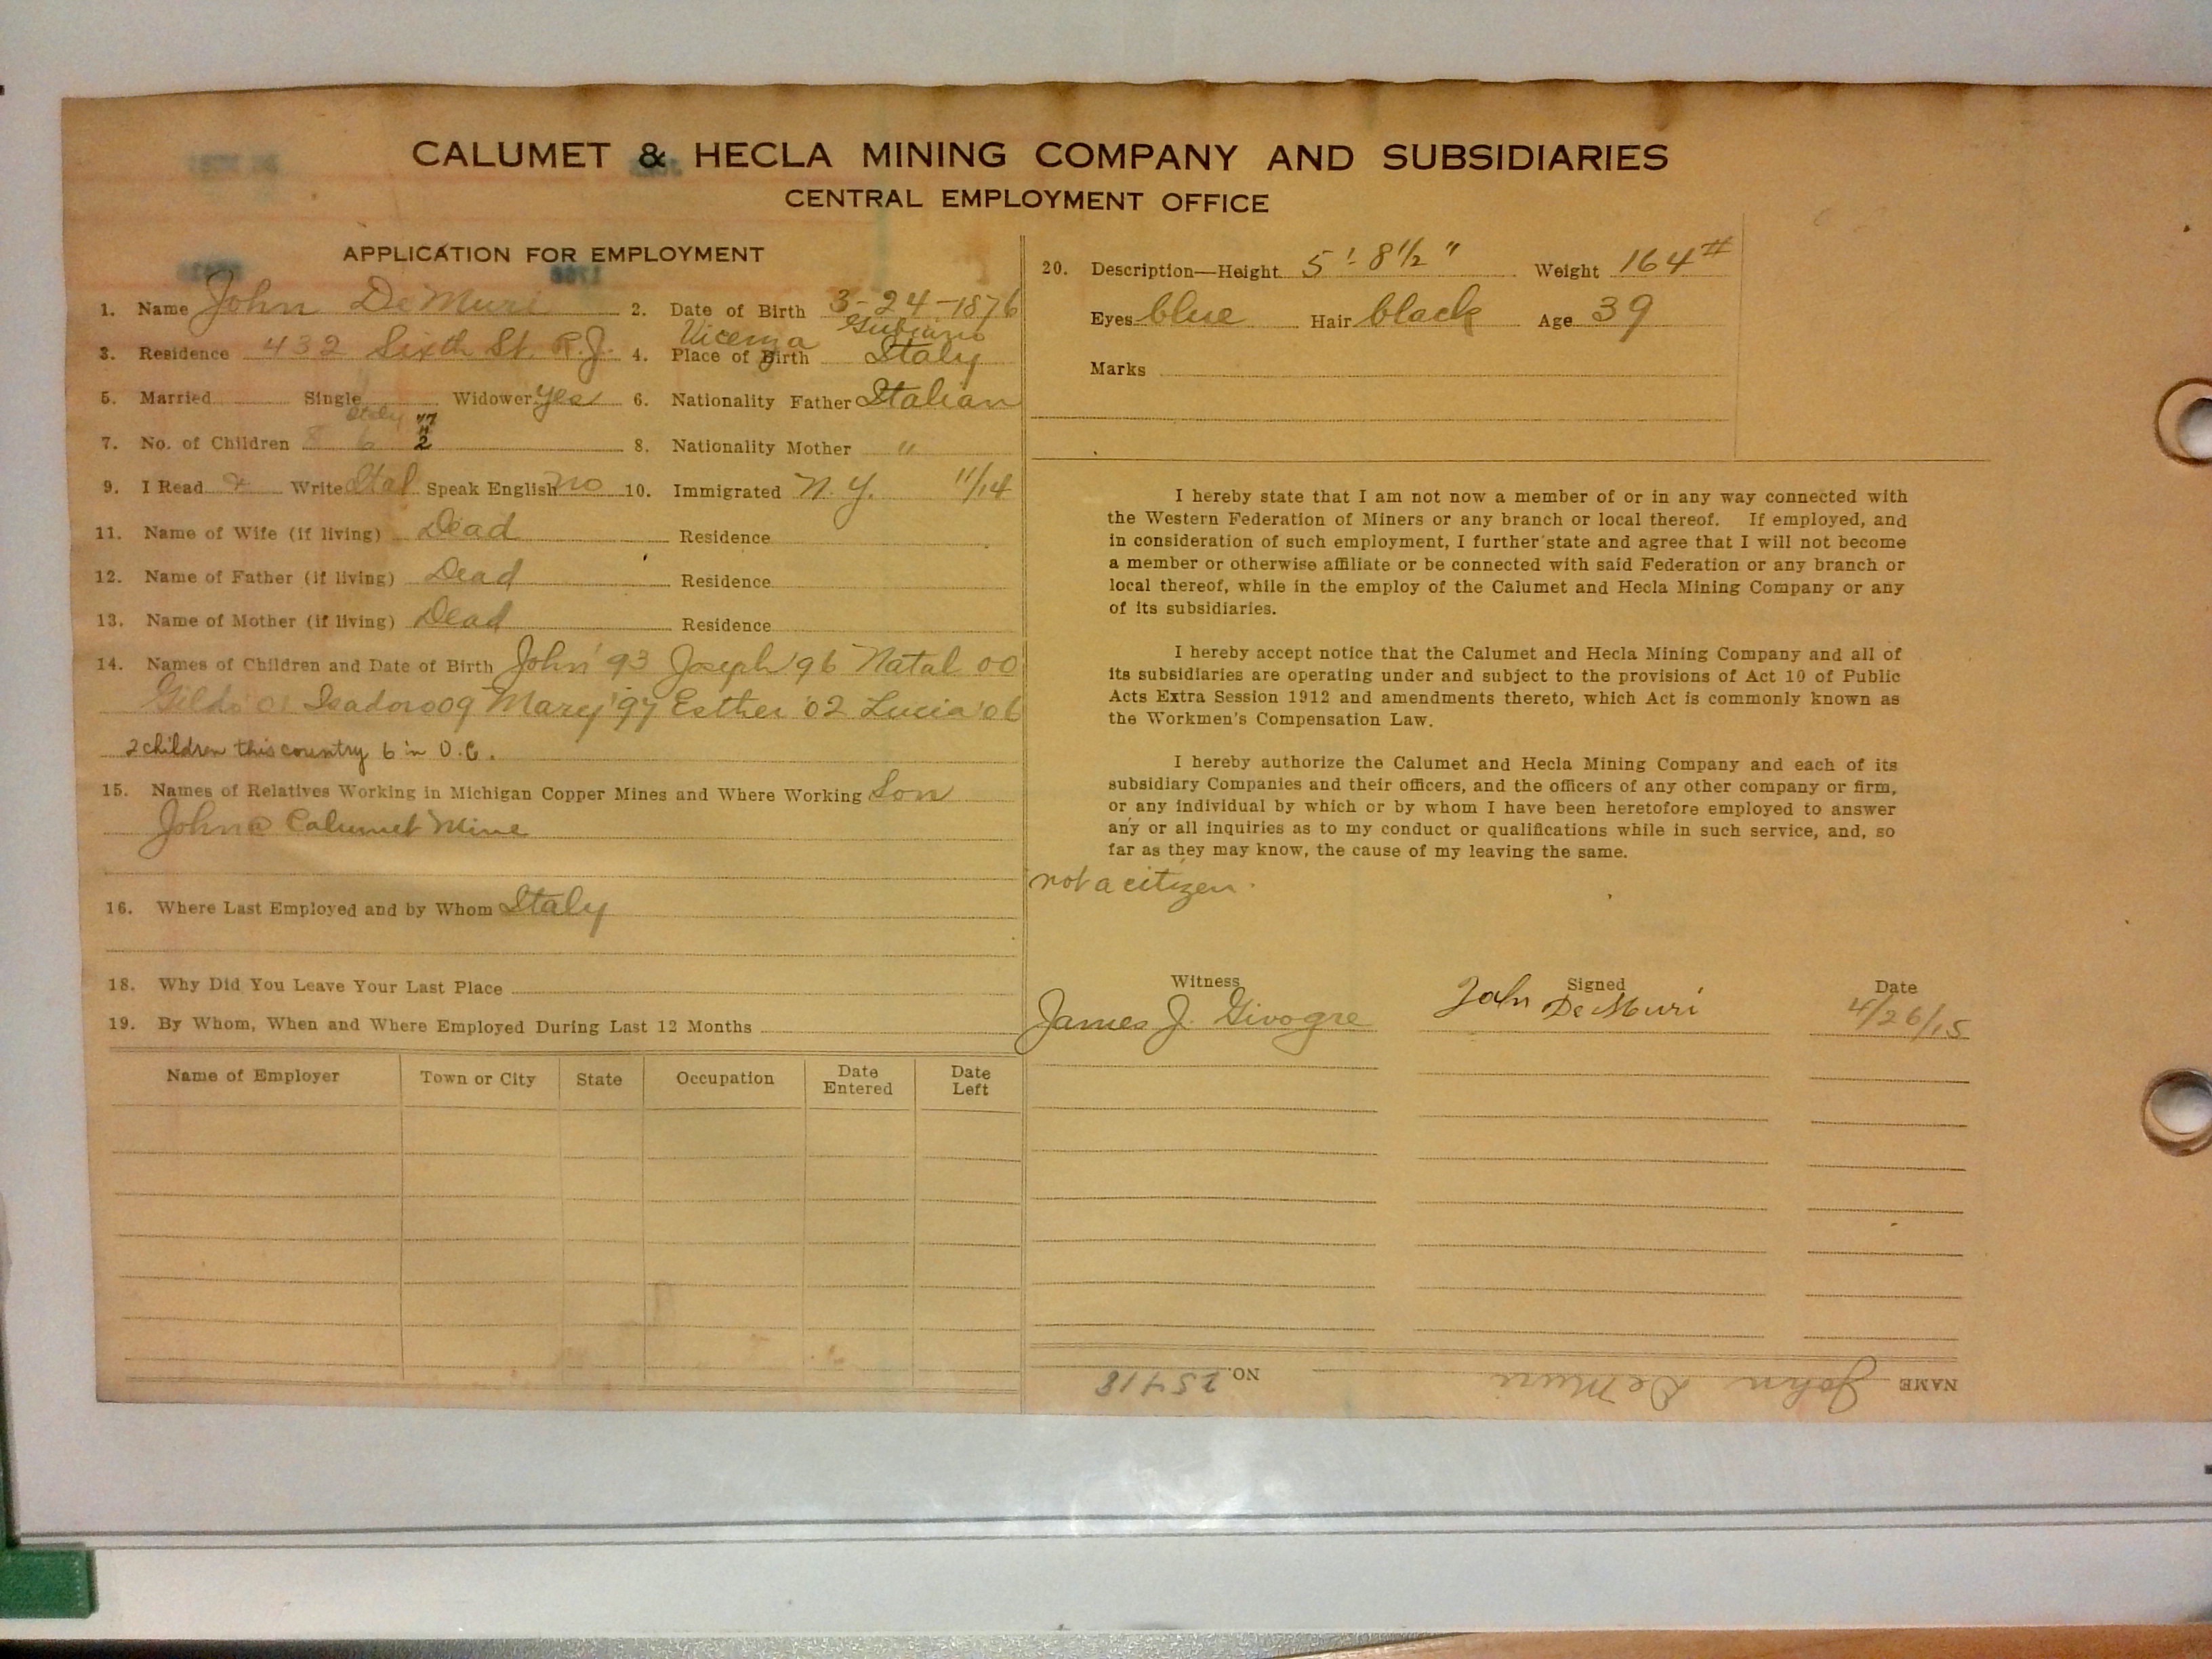 CALUMET & HECLA MINING COMPANY AND SUBSIDIARIES
CENTRAL EMPLOYMENT OFFICE
APPLICATION FOR EMPLOYMENT
1. Name John DeMuri 2. Date of Birth 3-24-1876
Vicenza
3. Residence 432 Sixth St. R.J. 4. Place of Birth Italy
5. Married Single Widower Yes 6. Nationality Father Italian
Italy
7. No. of Children 8 6 2 8. Nationality Mother "
9. I Read & Write Ital Speak English no 10. Immigrated N.Y. 11/14
11. Name of Wife (if living) Dead Residence
12. Name of Father (if living) Dead Residence
13. Name of Mother (if living) Dead Residence
14. Names of Children and Date of Birth John '93 Joseph '96 Natal 00
Gildo 01 Isadoro 09 Mary '97 Esther '02 Lucia '06
2 children this country 6 in O.C.
15. Names of Relatives Working in Michigan Copper Mines and Where Working Son
John @ Calumet Mine
16. Where Last Employed and by Whom Italy
18. Why Did You Leave Your Last Place
19. By Whom, When and Where Employed During Last 12 Months
Name of Employer Town or City State Occupation Date Entered Date Left
20. Description—Height 5' 8 1/2" Weight 164#
Eyes blue Hair black Age 39
Marks
I hereby state that I am not now a member of or in any way connected with
the Western Federation of Miners or any branch or local thereof. If employed, and
in consideration of such employment, I further state and agree that I will not become
a member or otherwise affiliate or be connected with said Federation or any branch or
local thereof, while in the employ of the Calumet and Hecla Mining Company or any
of its subsidiaries.
I hereby accept notice that the Calumet and Hecla Mining Company and all of
its subsidiaries are operating under and subject to the provisions of Act 10 of Public
Acts Extra Session 1912 and amendments thereto, which Act is commonly known as
the Workmen's Compensation Law.
I hereby authorize the Calumet and Hecla Mining Company and each of its
subsidiary Companies and their officers, and the officers of any other company or firm,
or any individual by which or by whom I have been heretofore employed to answer
any or all inquiries as to my conduct or qualifications while in such service, and, so
far as they may know, the cause of my leaving the same.
not a citizen.
Witness Signed Date
James J. Givogre John DeMuri 4/26/15
NAME John DeMuri NO. 25418